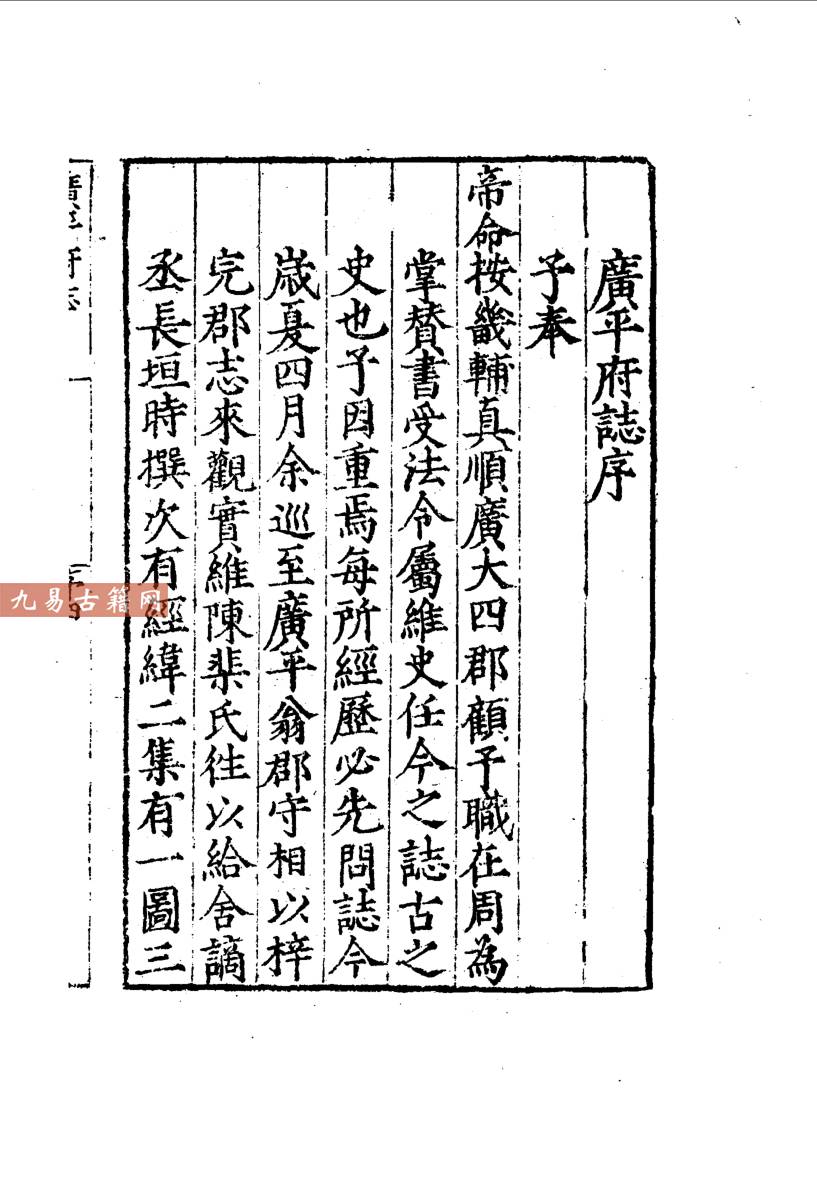 廣平府誌序
予奉
帝命按畿輔真順廣大四郡顧予職在周為
掌賛書受法令屬維史任今之誌古之
史也予因重焉每所經歷必先問誌今
歲夏四月余巡至廣平翁郡守相以梓
完郡志來觀實維陳棐氏徃以給舍謫
丞長垣時撰次有經緯二集有一圖三
九易古籍网